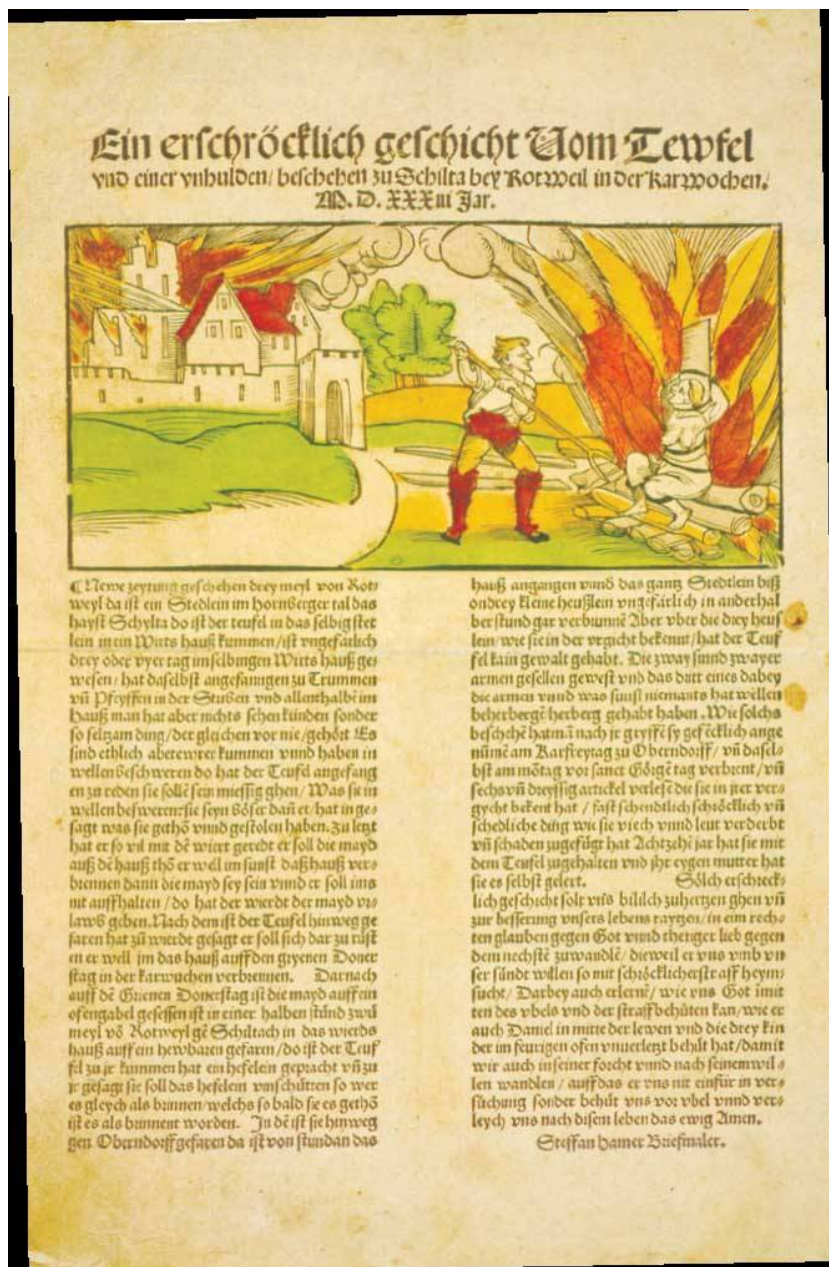 Ein erschröcklich geschicht Vom Tewfel
vnd einer vnhulden/ beschehen zu Schilta bey Rotweil in der Karwochen.
M. D. XXXiii Jar.
¶ Newe zeytung geschehen drey meyl von Rot⸗
weyl da ist ein Stedlein im hornberger tal das
hayst Schylta do ist der teufel in das selbig stet
lein in ein Wirts hauß kummen/ist vngefärlich
drey oder vyer tag im selbingen Wirts hauß ge⸗
wesen/ hat daselbst angefanngen zu Trummen
vñ Pfeyffen in der Stuben vnd allenthalbē im
hauß man hat aber nichts sehen künden sonder
so seltzam ding/der gleichen vor nie/gehört Es
sind ethlich abetewrer kummen vnnd haben in
wellen beschweren do hat der Teufel angefang
en zu reden sie sollē sein miessig ghen/ Was sie in
wellen besweren: sie seyn böser dañ er/ hat in ge⸗
sagt was sie gethō vnnd gestolen haben. Zu letzt
hat er so vil mit dē wiert geredt er soll die mayd
auß dē hauß thō er wöl im sunst daßhauß ver⸗
brennen dann die mayd sey sein vnnd er soll ims
nit auffhalten/ do hat der wierdt der mayd vr⸗
lawb geben. Nach dem ist der Teufel hinweg ge
faren hat zū wierdt gesagt er soll sich dar zu rüst
en er well im das hauß auff den gryenen Doner
stag in der karwuchen verbrennen. Darnach
auff dē Grienen Donerstag ist die mayd auff ein
ofengabel gesessen ist in einer halben stūnd zwū
meyl vō Rotweyl gē Schiltach in das wierds
hauß auff ein hewbaren gefaren/do ist der Teuf
fel zu jr kummen hat ein hefelein gepracht vñ zu
jr gesagt sie soll das hefelein vmschütten so wer
es gleych als brinnen/welchs so bald sie es gethō
ist es als brinnent worden. In dē ist sie hinweg
gen Oberndorff gefaren da ist von stundan das
hauß angangen vnnd das gantz Stedtlein biß
on drey kleine heußlein vngefärlich in anderhal
ber stund gar verbrunnē Aber vber die drey heus
lein/wie sie in der vrgicht bekennt/hat der Teuf
fel kain gewalt gehabt. Die zway sinnd zwayer
armen gesellen gewest vnd das dritt eines dabey
die armen vnnd was sunst niemants hat wellen
beherbergē herberg gehabt haben. Wie solchs
beschehē hat mā nach jr gryffē sy gefēcklich ange
nūmē am Karfreytag zu Oberndorff/ vñ dasel⸗
bst am mōtag vor sanct Görgē tag verbrent/ vñ
sechs vñ dreyssig artickel verlesē die sie in jrer ver⸗
gycht bekent hat/ fast schendtlich schröcklich vñ
schedliche ding wie sie viech vnnd leut verderbt
vñ schaden zugefügt hat Achtzehē jar hat sie mit
dem Teufel zugehalten vnd jhr eygen mutter hat
sie es selbst gelert. Sölch erschreck⸗
lich geschicht solt vns bililch zuhertzen ghen vñ
zur besserung vnsers lebens raytzen/in ein rech⸗
ten glauben gegen Got vnnd thetiger lieb gegen
dem nechstē zuwandlē/ dieweil er vns vmb vn
ser sündt willen so mit schröcklicher straff heym⸗
sucht/ Darbey auch erlernē/ wie vns Got imit
ten des vbels vnd der straff behüten kan/wie er
auch Daniel in mitte der lewen vnd die drey kin
der im feurigen ofen vnuerletzt behüt hat/damit
wir auch in seiner forcht vnnd nach seinem wil⸗
len wandlen/ auff das er vns nit einfür in ver⸗
süchung sonder behüt vns vor vbel vnnd ver⸗
leych vns nach disem leben das ewig Amen.
Steffan hamer Briefmaler.